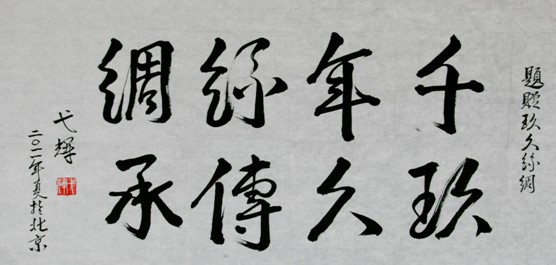 題贈玖久絲綢
千玖
年久
絲傳
綢承
弋輝
二〇一一年夏於北京